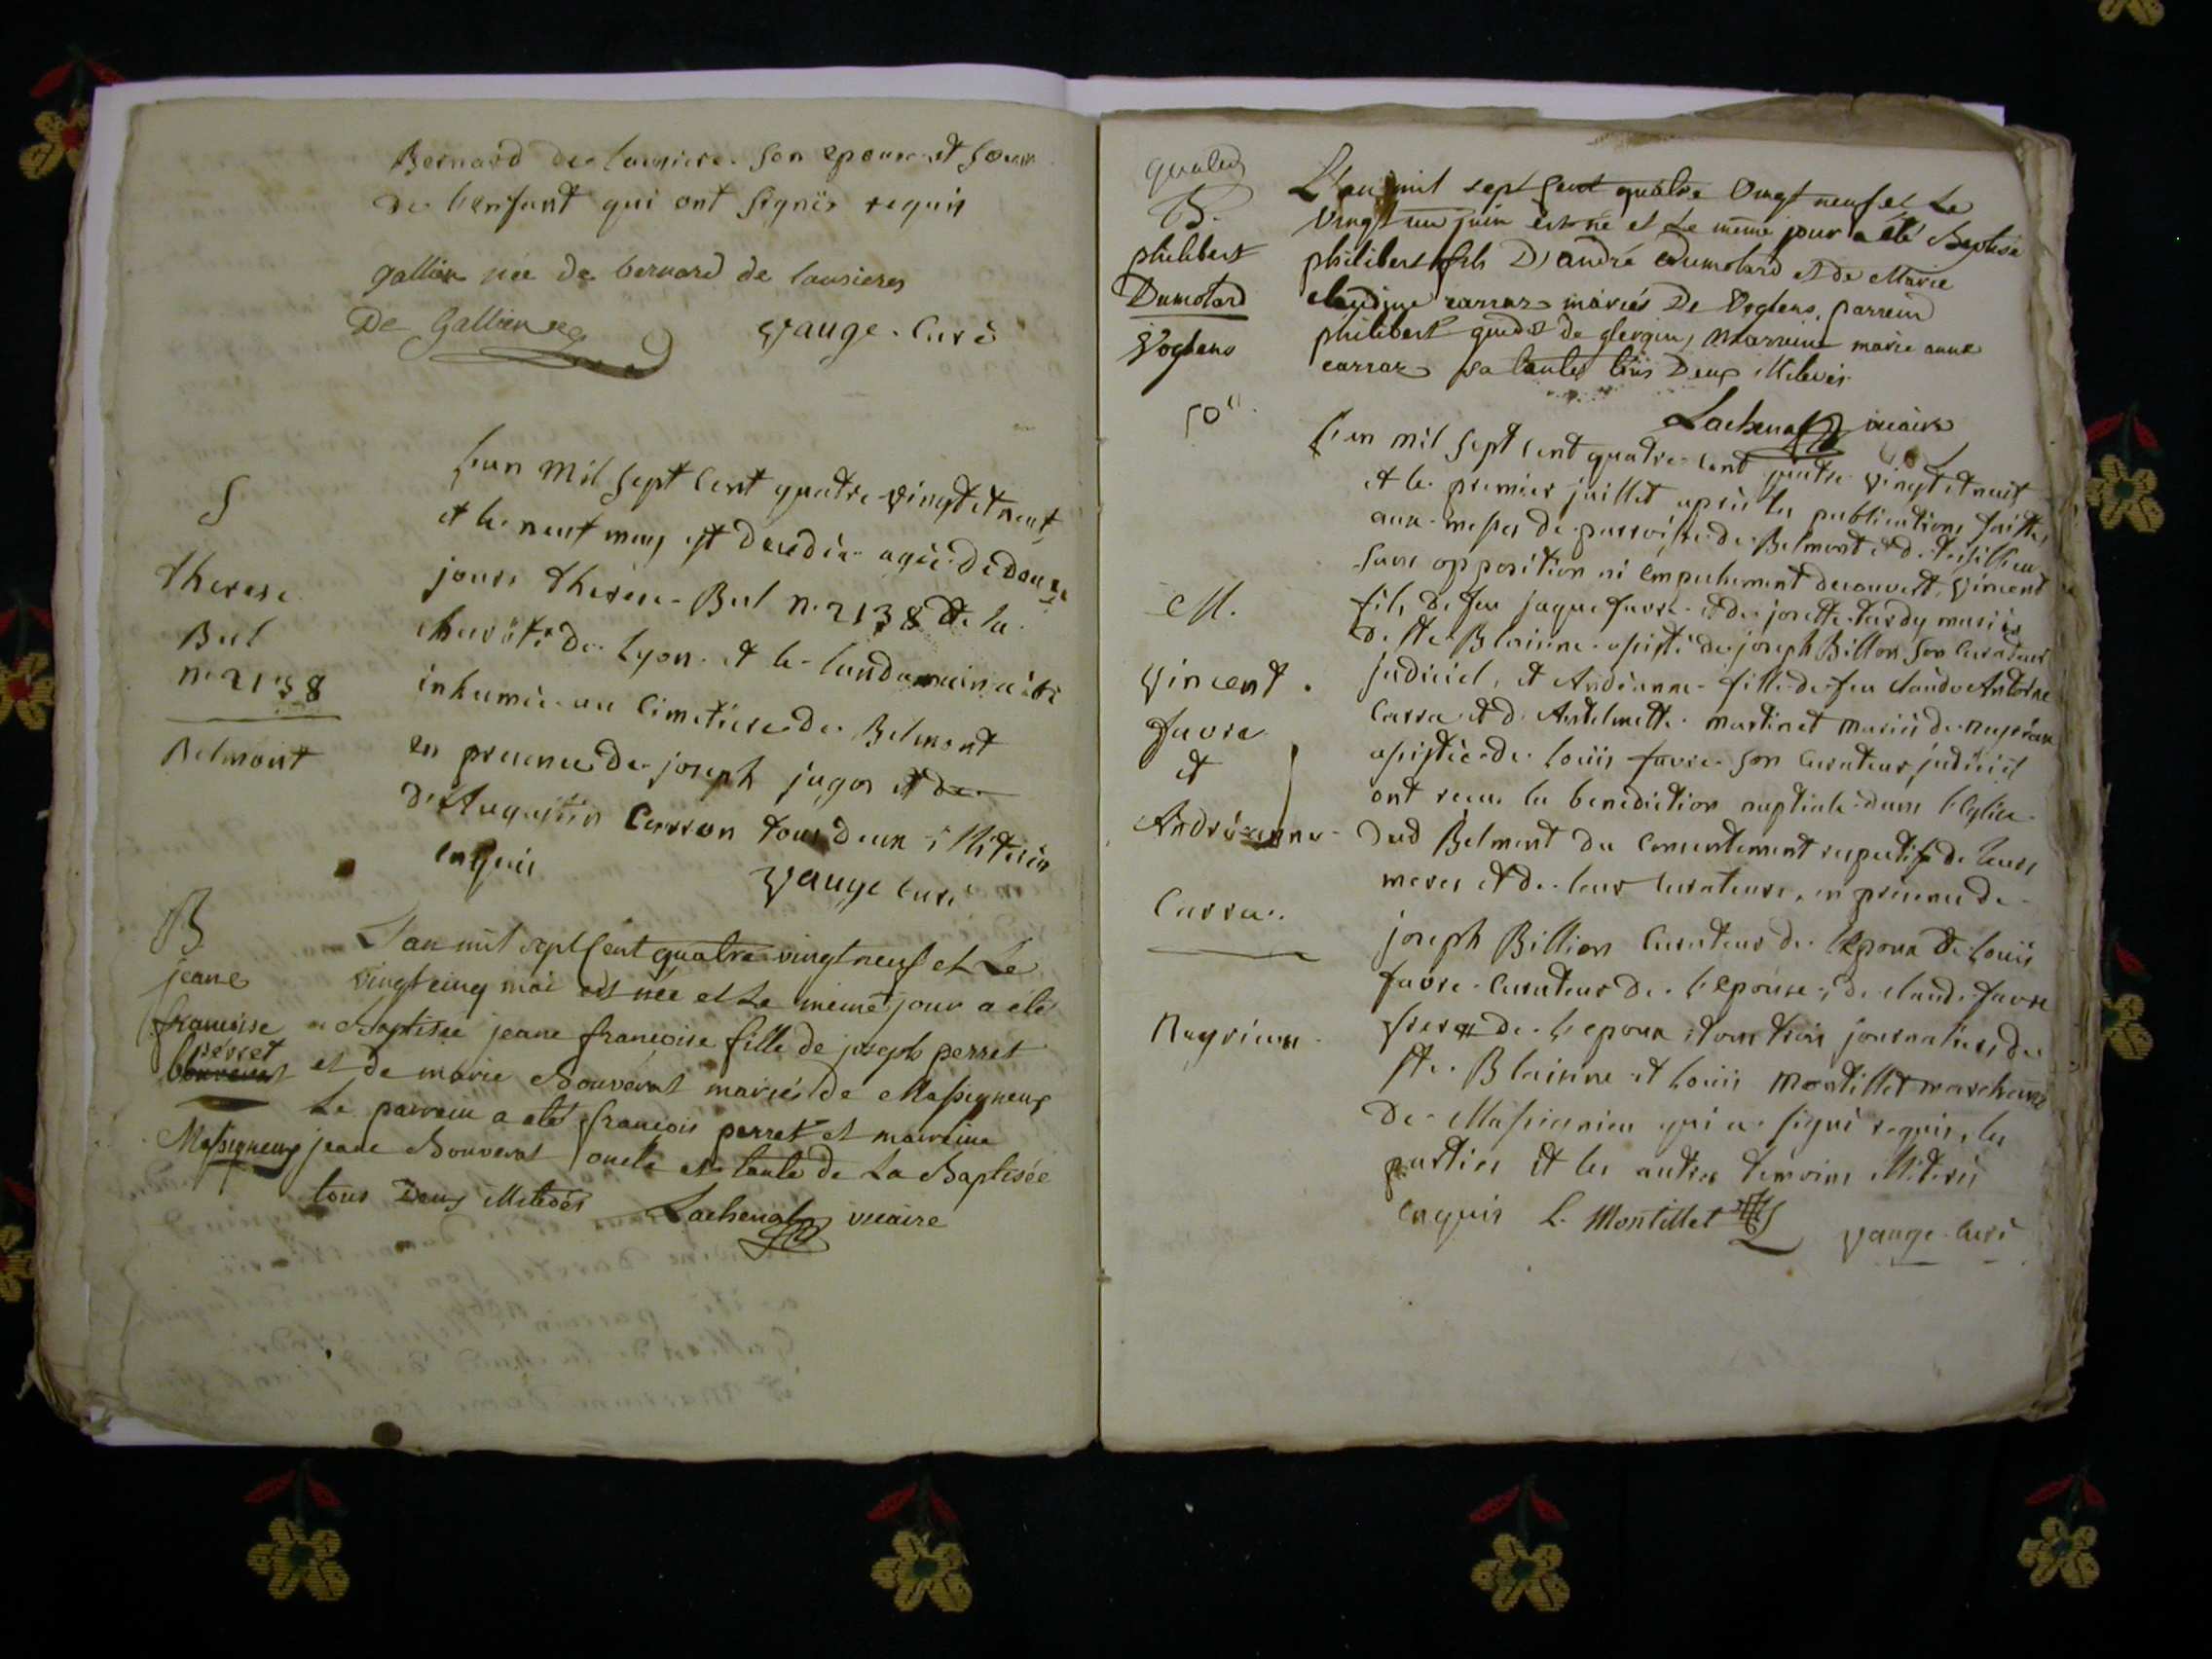 Bernard de lausiere son epouse et soeur
de l'enfant qui ont signés requis
gallien née de bernard de lausieres
De Gallien
Vauge. Curé
S
Therese
Bul
n. 2138
Belmont
L'an mil sept cent quatre vingt et neuf
et le neuf may est decedée agée de douze
jours therese Bul n. 2138 de la
charité de Lyon et le landemain a été
inhumée au cimetiere de Belmont
en presence de joseph jugon et de
d'Augustin Carron tous deux illiterés
enquis
Vauge curé
B
jeane
francoise
perret
bouverat
Massigneux
L'an mil sept cent quatre vingt neuf et Le
vingt cinq mai est née et Le meme jour a été
Baptisée jeane francoise fille de joseph perret
et de marie Bouverat mariés de Massigneux
Le parrain a eté francois perret et marreine
jeane Bouverat oncle et tante de La Baptisée
tous Deux illiterés Lachenal vicaire
B.
philibert
Dumolard
Vogland
L'an mil sept cent quatre Vingt neuf et Le
Vingt un juin est né et Le meme jour a été Baptisé
philibert fils D'andré Dumolard et de Marie
claudine carraz mariés De Voglens, parrein
philibert de marreine marie anne
carraz sa tante tous Deux illiterés
Lachenal vicaire
50
M.
Vincent
favre
et
Andréanne
Carra
Neyrieu
L'an mil sept cent quatre cent quatre vingt et neuf
et le premier juillet après les publications faittes
aux messes de parroisse de Belmont et de
sans opposition ni empechement decouvert, Vincent
fils de feu jaque favre et de josette tardy mariés
de Ste Blaisine assisté de joseph Billion son curateur
judiciel, et Andréanne fille de feu claude Antoine
Carra et d'Antelmette martinet mariés de neyrieu
assistée de louis favre son curateur judiciel
ont reçu la benediction nuptiale dans l'Eglise
dud Belmont du consentement respectif de leurs
meres et de leur curateurs, en presence de
joseph Billion curateur de l'epoux de louis
favre curateur de l'epouse, de claude favre
frere de l'epoux, tous trois journaliers de
Ste Blaisine et louis Montillet marchand
de Massignieu qui a signé requis, les
parties et les autres temoins illiterés
enquis L. Montillet
Vauge curé